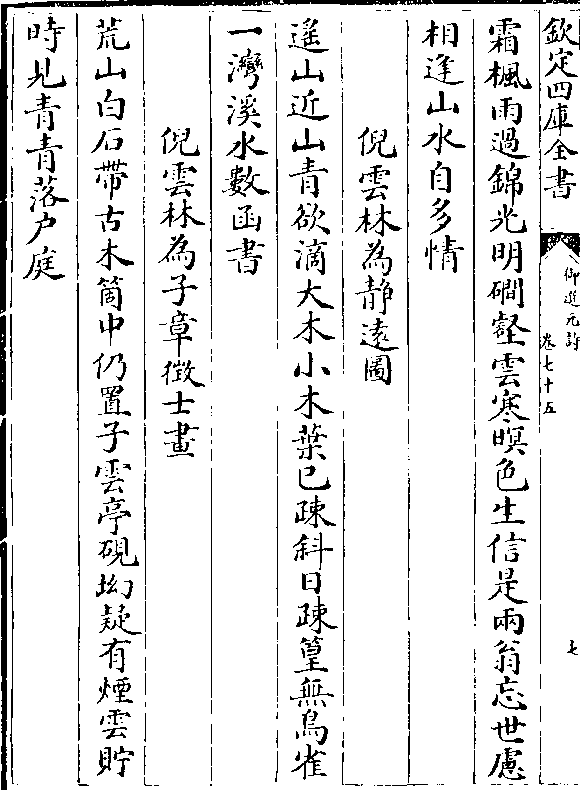 欽定四庫全書
御選元詩
卷七十五
七
霜楓雨過錦光明磵壑雲寒暝色生信是兩翁忘世慮
相逢山水自多情
倪雲林為静遠圖
遥山近山青欲滴大木小木葉已疎斜日疎篁無鳥雀
一灣溪水數函書
倪雲林為子章徴士畫
荒山白石帶古木箇中仍置子雲亭硯坳疑有煙雲貯
時見青青落户庭